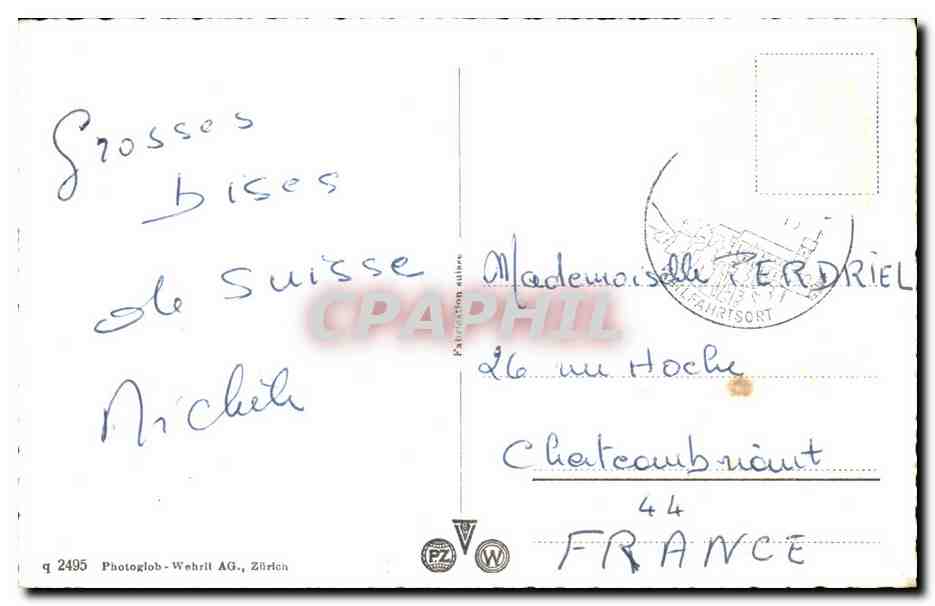 Grosses
bises
de Suisse
Michèle
Fabrication suisse
CPAPHIL
WALLFAHRTSORT
Mademoiselle PERDRIEL
26 rue Hoche
Chateaubriant
44
FRANCE
PZ
W
q 2495 Photoglob - Wehrli AG., Zürich